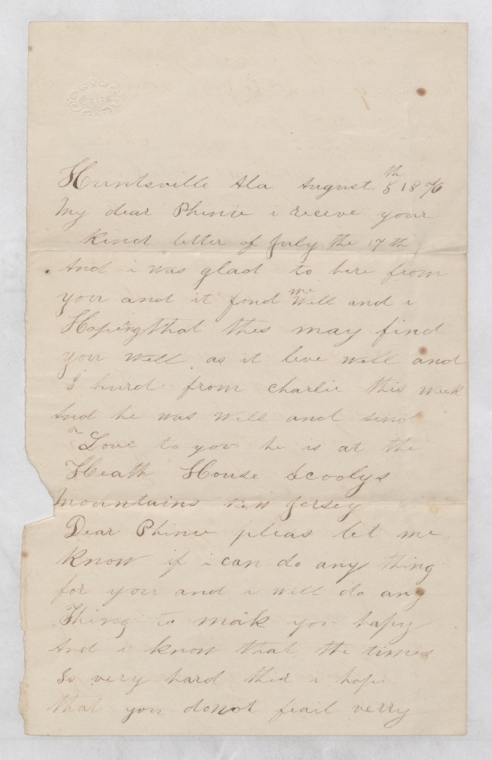 Huntsville Ala August 8th 1876
My dear Phinie i receve your
Kind letter of July the 17th
And i was glad to here from
you and it find me Well and i
Hoping that this may find
you Well as it leve well and
I hurd from charlie this week
And he was well and send
Love to you he is at the
Heath House Scoolys
Mountains New Jersey
Dear Phinie pleas let me
Know if i can do any thing
for you and i will do any
Thing to mak you hapy
And i know that the times
is very hard ther i hope
that you donot feail verry